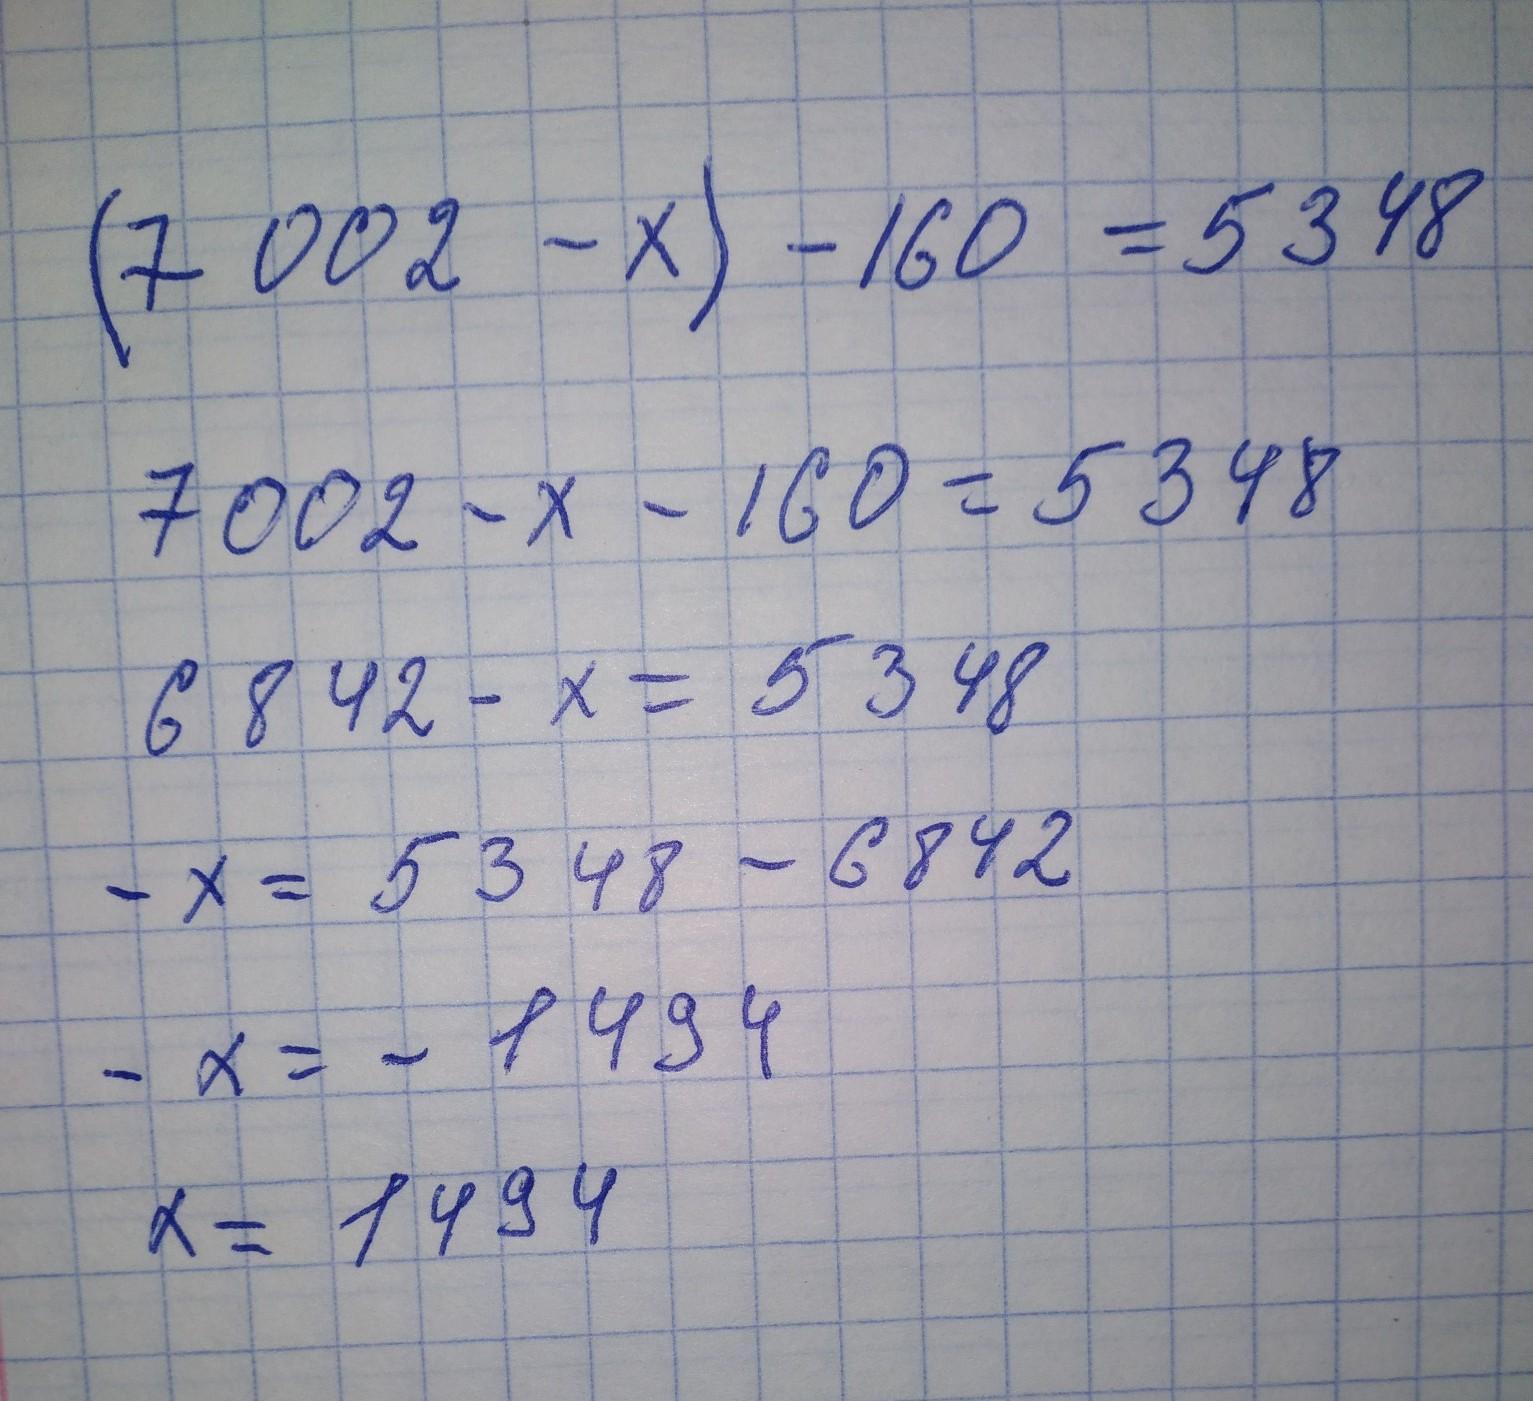 (7 002 - x) - 160 = 5348
7002 - x - 160 = 5348
6842 - x = 5348
- x = 5348 - 6842
- x = - 1494
x = 1494